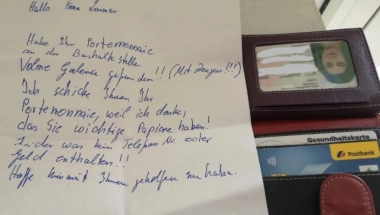 Hallo Frau
Habe Ihr Portemonnaie
an der Bushaltestelle
Volme Galerie gefunden!! (Mit Zeugen!!!)
Ich schicke Ihnen Ihr
Portemonnaie, weil ich denke,
das Sie wichtige Papiere haben!
Leider war kein Telefon Nr. oder
Geld enthalten!!
Hoffe hiermit Ihnen geholfen zu haben.
Gesundheitskarte
Postbank